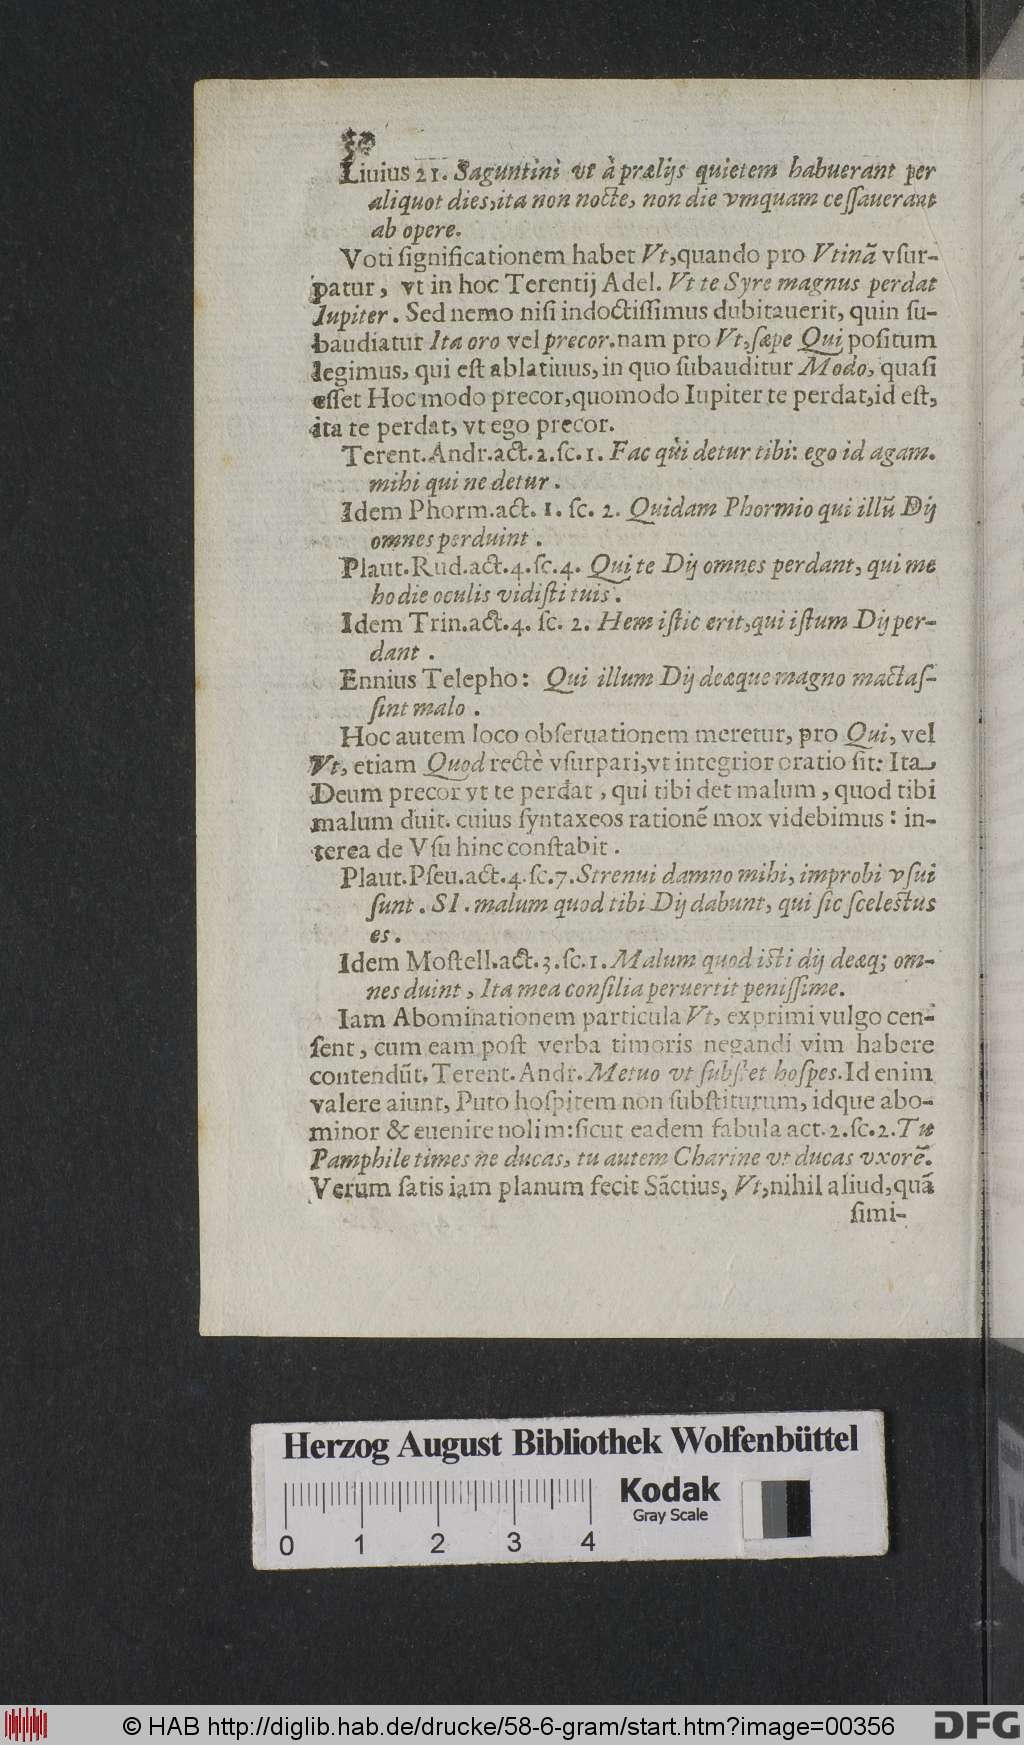 50
Liuius 21. Saguntini vt à prælijs quietem habuerant per
aliquot dies,ita non nocte, non die vmquam ceſſauerant
ab opere.
Voti ſignificationem habet Vt,quando pro Vtinã vſur-
patur, vt in hoc Terentij Adel. Vt te Syre magnus perdat
Iupiter. Sed nemo niſi indoctiſſimus dubitauerit, quin ſu-
baudiatur Ita oro vel precor.nam pro Vt,ſæpe Qui poſitum
legimus, qui eſt ablatiuus,in quo ſubauditur Modo, quaſi
eſſet Hoc modo precor,quomodo Iupiter te perdat,id eſt,
ita te perdat, vt ego precor.
Terent.Andr.act.2.ſc.1. Fac qui detur tibi: ego id agam.
mihi qui ne detur.
Idem Phorm.act. 1. ſc. 2. Quidam Phormio qui illũ Dij
omnes perduint.
Plaut.Rud.act.4.ſc.4. Qui te Dij omnes perdant, qui me
hodie oculis vidiſti tuis.
Idem Trin.act.4. ſc. 2. Hem iſtic erit,qui iſtum Dij per-
dant.
Ennius Telepho: Qui illum Dij deæque magno mactaſ-
ſint malo.
Hoc autem loco obſeruationem meretur, pro Qui, vel
Vt, etiam Quod rectè vſurpari,vt integrior oratio ſit: Ita
Deum precor vt te perdat, qui tibi det malum, quod tibi
malum duit. cuius ſyntaxeos rationẽ mox videbimus: in-
terea de Vſu hinc conſtabit.
Plaut.Pſeu.act.4.ſc.7.Strenui damno mihi, improbi vſui
ſunt. SI. malum quod tibi Dij dabunt, qui ſic ſceleſtus
es.
Idem Moſtell.act.3.ſc.1. Malum quod iſti dij deæq; om-
nes duint, Ita mea conſilia peruertit peniſſime.
Iam Abominationem particula Vt, exprimi vulgo cen-
ſent, cum eam poſt verba timoris negandi vim habere
contendũt. Terent. Andr. Metuo vt ſubſtet hoſpes. Id enim
valere aiunt, Puto hoſpitem non ſubſtiturum, idque abo-
minor & euenire nolim:ſicut eadem fabula act.2.ſc.2. Tu
Pamphile times ne ducas, tu autem Charine vt ducas vxorẽ.
Verum ſatis iam planum fecit Sãctius, Vt,nihil aliud,quã
ſimi-
Herzog August Bibliothek Wolfenbüttel
Kodak
Gray Scale
0 1 2 3 4
© HAB http://diglib.hab.de/drucke/58-6-gram/start.htm?image=00356
DFG